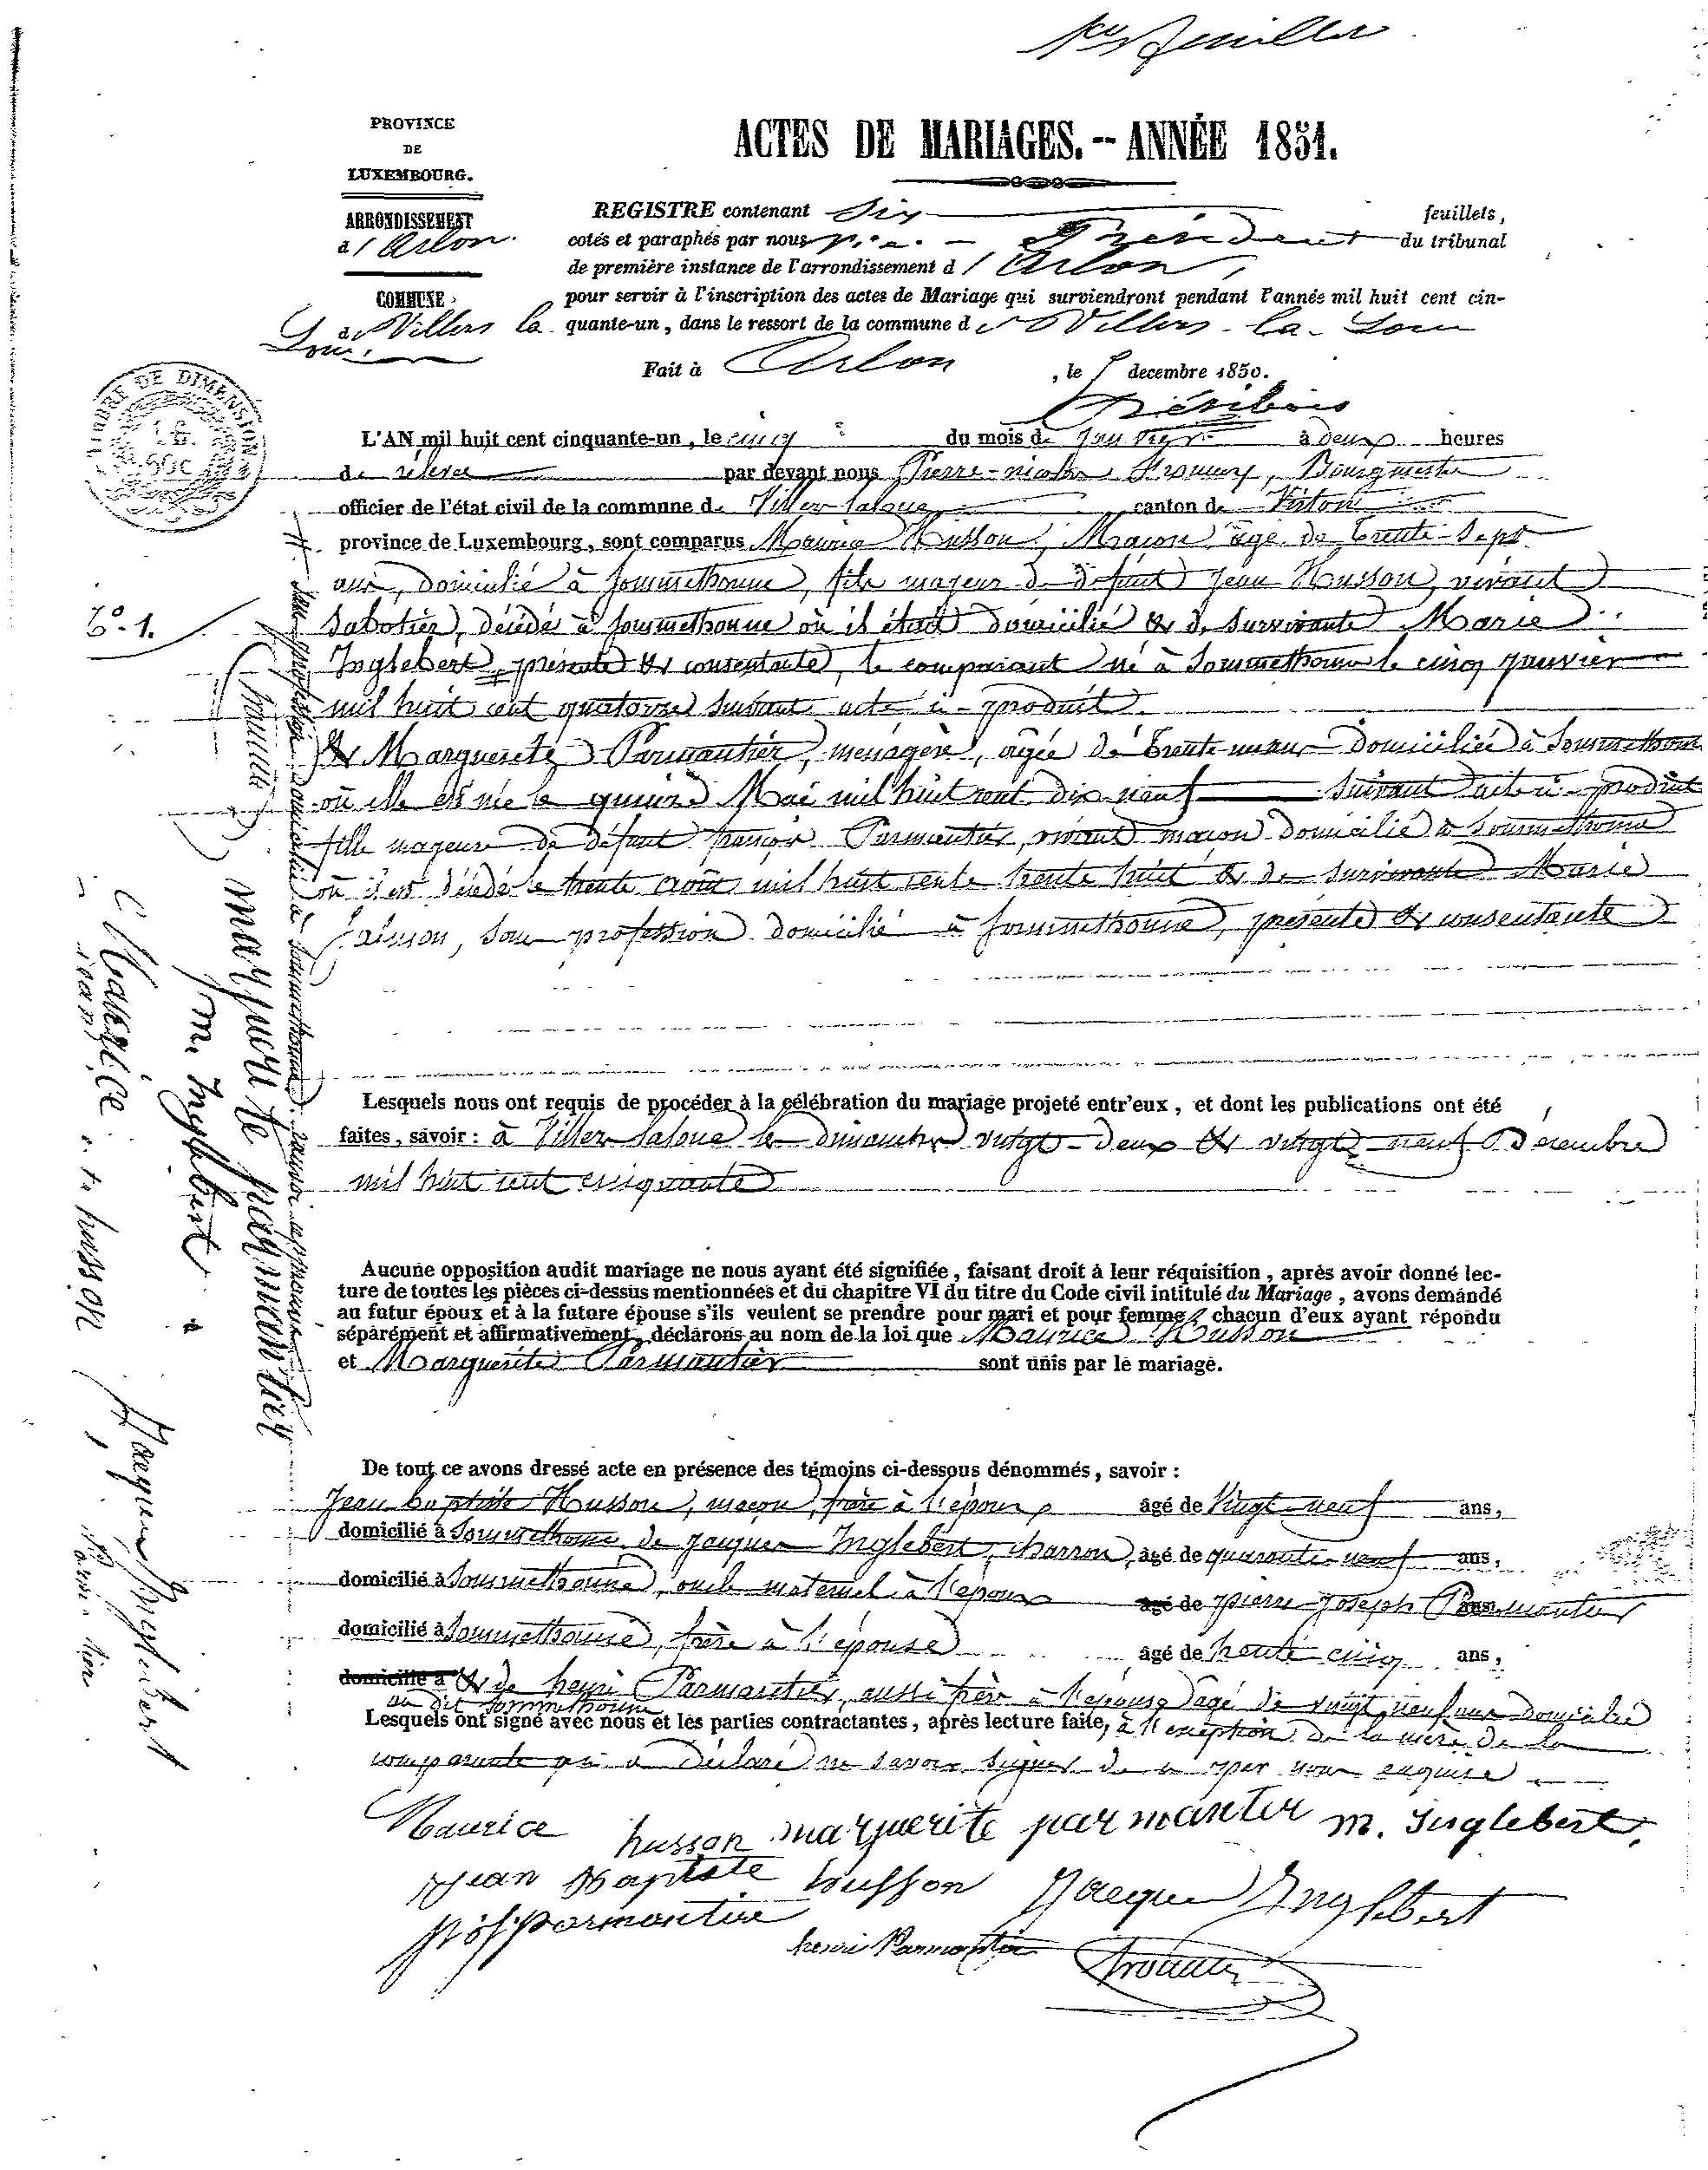 1er feuillet
PROVINCE
DE
LUXEMBOURG.
ARRONDISSEMENT
d'Arlon.
COMMUNE
de Villers la
Loue.
ACTES DE MARIAGES. -- ANNÉE 1851.
REGISTRE contenant Six feuillets,
cotés et paraphés par nous Président du tribunal
de première instance de l'arrondissement d'Arlon,
pour servir à l'inscription des actes de Mariage qui surviendront pendant l'année mil huit cent cin-
quante-un, dans le ressort de la commune de Villers-la-Loue
Fait à Arlon, le decembre 1850.
TIMBRE DE DIMENSION
N°. 1.
L'AN mil huit cent cinquante-un, le cinq du mois de Janvier à deux heures
de relevée par devant nous Pierre-nicolas Bourgmestre
officier de l'état civil de la commune de Villers-laloue canton de Virton
province de Luxembourg, sont comparus Maurice Husson, Maçon, âgé de trente-sept
ans, domicilié à Sommethonne, fils majeur de défunt Jean Husson, vivant
Sabotier, décédé à Sommethonne où il était domicilié & de survivante Marie
Inglebert, # présente & consentante, le comparant né à Sommethonne le cinq janvier
mil huit cent quatorze suivant acte ci-produit.
& Marguerite Parmantier, menagère, agée de trente-un ans domiciliée à Sommethonne
où elle est née le quinze Mai mil huit cent dix-neuf suivant acte ci-produit
fille majeure de défunt françois Parmantier, vivant maçon domicilié à Sommethonne
où il est décédé le trente août mil huit cent trente huit & de survivante Marie
sans profession domicilié à Sommethonne, présente & consentante
# sans profession domiciliée à Sommethonne. renvoi approuvé
marguerite parmantier
m. Inglbert
Maurice husson
Jacques Inglebert
Lesquels nous ont requis de procéder à la célébration du mariage projeté entr'eux, et dont les publications ont été
faites, savoir : à Villers-laloue les dimanches vingt-deux & vingt-neuf Décembre
mil huit cent cinquante
Aucune opposition audit mariage ne nous ayant été signifiée, faisant droit à leur réquisition, après avoir donné lec-
ture de toutes les pièces ci-dessus mentionnées et du chapitre VI du titre du Code civil intitulé du Mariage, avons demandé
au futur époux et à la future épouse s'ils veulent se prendre pour mari et pour femme, chacun d'eux ayant répondu
séparément et affirmativement, déclarons au nom de la loi que Maurice Husson
et Marguerite Parmantier sont unis par le mariage.
De tout ce avons dressé acte en présence des témoins ci-dessous dénommés, savoir :
Jean baptiste Husson, maçon, frère à l'époux âgé de Vingt-neuf ans,
domicilié à Sommethonne de Jacques Inglebert, charron, âgé de quarante-neuf ans,
domicilié à Sommethonne, oncle maternel à l'époux âgé de pierre-Joseph Parmantier ans
domicilié à Sommethonne, frère à l'épouse âgé de trente cinq ans,
domicilié à & de henri Parmantier, aussi frère à l'épouse agé de vingt neuf ans domicilié
au dit Sommethonne
Lesquels ont signé avec nous et les parties contractantes, après lecture faite, à l'exception de la mère de la
comparante qui a déclaré ne savoir signer de ce par nous enquise
Maurice husson marguerite parmantier m. Inglebert.
Jean Baptiste husson Jacques Inglebert
Parmantier
henri Parmantier